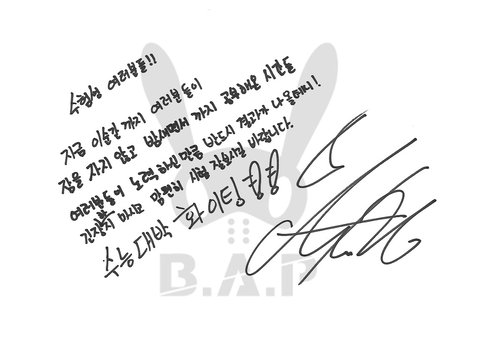 수험생 여러분들!!
지금 이순간 까지 여러분들이
잠을 자지 않고 밤새면서 까지 공부해온 시간들
여러분들이 노력하신만큼 반드시 결과가 나올테니!
긴장하지 마시고 맘편히 시험 잘보시길 바랍니다.
수능대박 화이팅
B.A.P